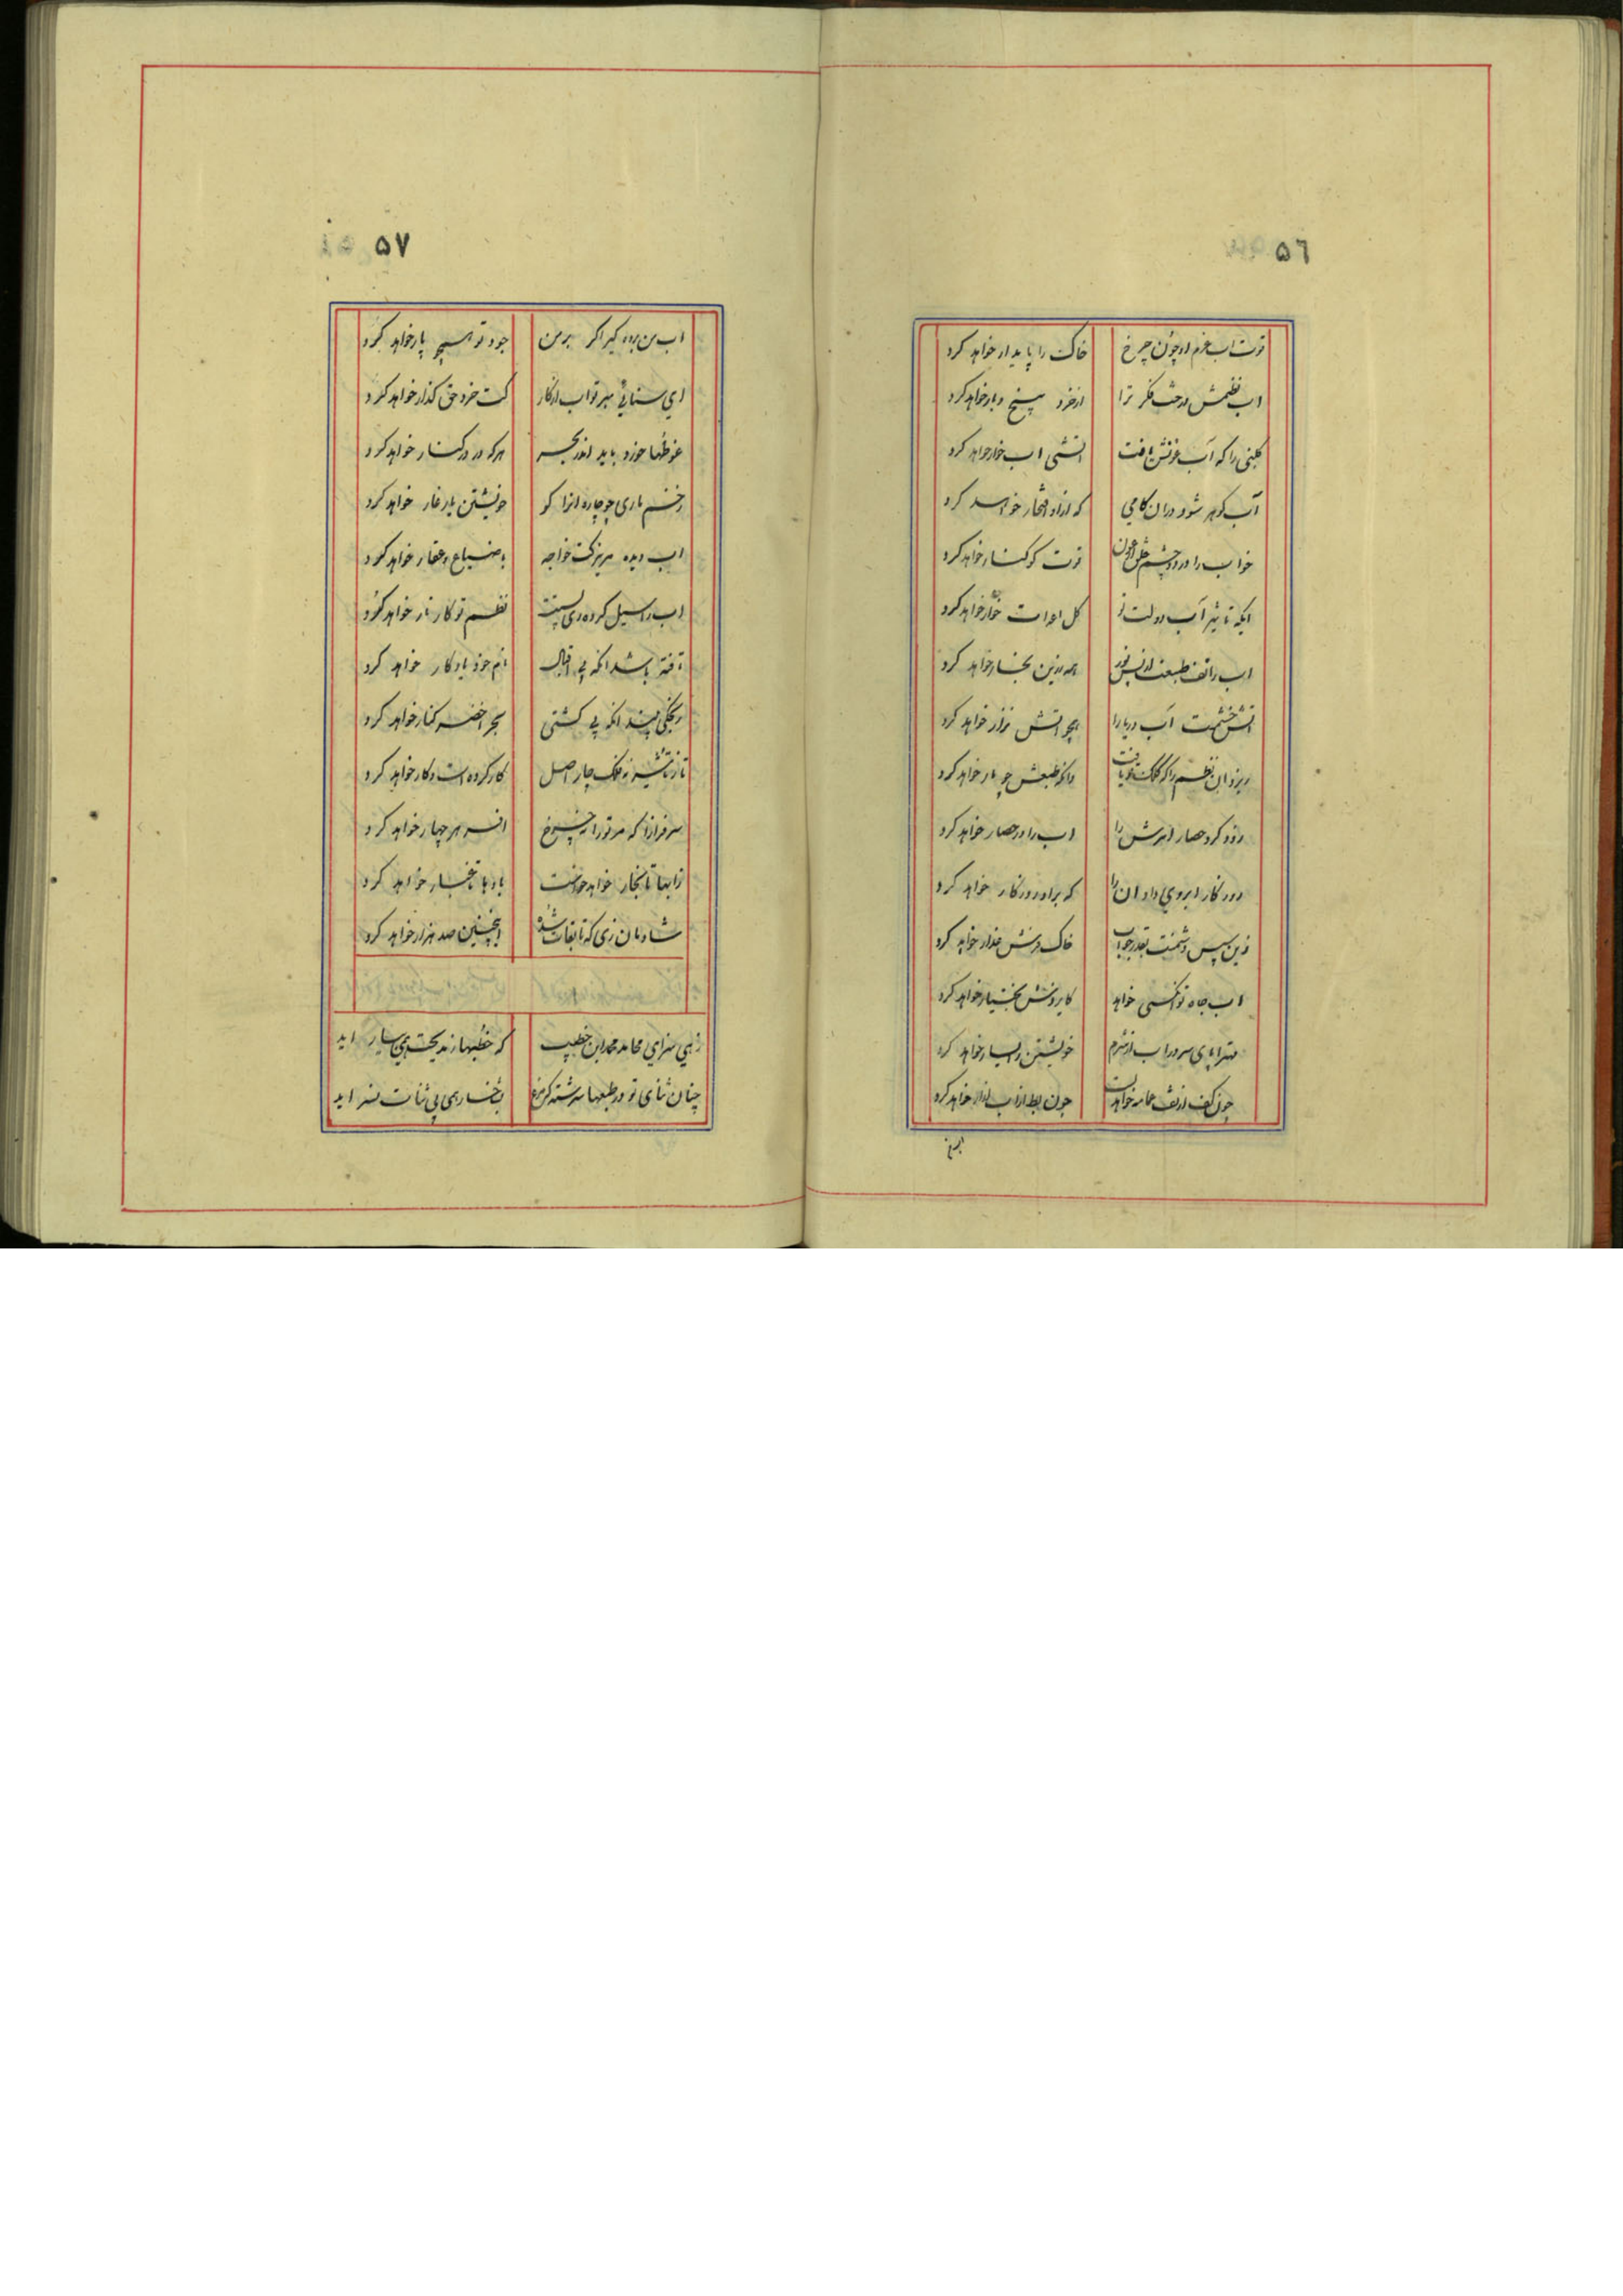 ٥٦
قوت اب عزم او چون چرخ خاک را پایدار خواهد کرد
اب نظمش درخت فکر ترا از خرد بیخ و بار خواهد کرد
گلبنی را که آب عونش یافت اتشی اب خوار خواهد کرد
آب گوهر شود در ان کامی که از او افتخار خواهد کرد
خواب را در دو چشم قوت کوکنار خواهد کرد
ایکه تاثیر آب دولت تو کل اعدات خوار خواهد کرد
اب را تف طبعت از پس نور همه زرین بخار خواهد کرد
اتش خشمت آب دریا را همچو اتش نزار خواهد کرد
ریزد ان نظم را که کلک تو یافت وانکه طبعش چو نار خواهد کرد
زود گرد حصار را اب را در حصار خواهد کرد
روزگار ابروی داد ان را که برادر روزگار خواهد کرد
زین سپس دشمنت بقدر جواب خاک در عذار خواهد کرد
اب جاه تو انکسی خواهد کایزدش بختیار خواهد کرد
مهتر اپای سرو را اب از شرم خویشتن را خواهد کرد
چون کف از تف عمامه خواهد بست چون بط از اب ازار خواهد کرد
٥٧
اب من برده گیر اگر بر من جود تو همچو پار خواهد کرد
ای سنائی مبر تو اب ازکار کت خرد حق گذار خواهد کرد
غوطها خورد باید اندر بحر هرکه در در کنار خواهد کرد
زخم ماری چو چاره انرا کو خویشتن یار غار خواهد کرد
اب دیده مریز کت خواجه با ضیاع و عقار خواهد کرد
اب را سیل کرده ری پستت نظم تو کار نار خواهد کرد
تافته باشد انکه بی اقبال نام خود یادکار خواهد کرد
رنجکی بیند انکه بی کشتی بحر اخضر کنار خواهد کرد
تا ز تاثیر نه فلک چار اصل کار کرده است و کار خواهد کرد
سرفراز که مر تو را نه چرخ افسر هر چهار خواهد کرد
زابها تا بخار خواهد خواست بادها تا غبار خواهد کرد
شادمان زی که تا بقات شده اینچنین صد هزار خواهد کرد
زهی سزای محامد محمد ابن خطیب که خطبها ز مدیحت همی بیاراید
چنان ثنای تو در طبعها سرشته کرم بخسار همی بی ثنات نسراید